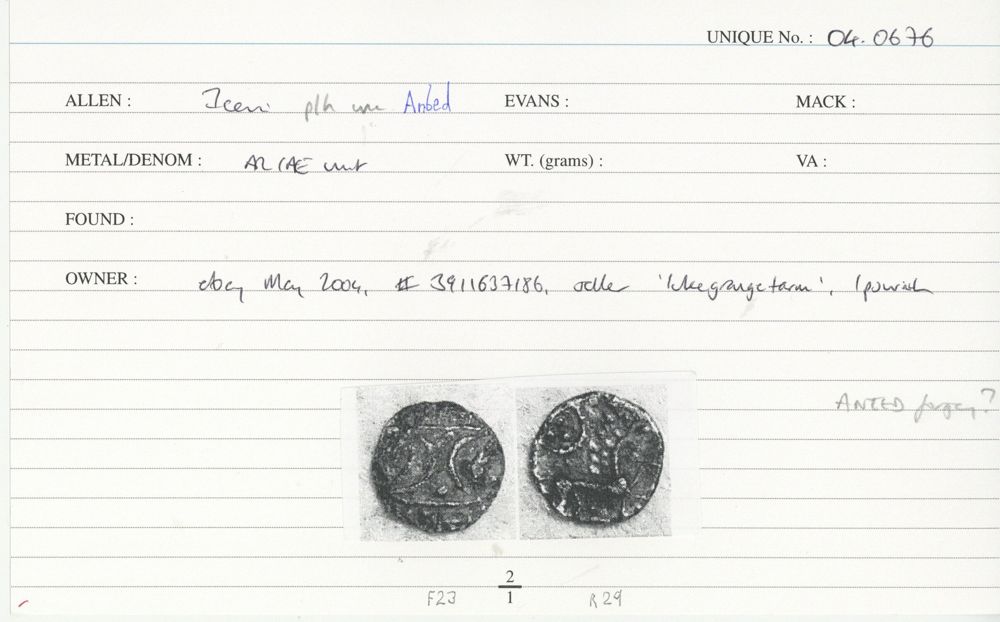 UNIQUE No. : 04.0676
ALLEN : Iceni plh unc Anted EVANS : MACK :
METAL/DENOM : AR/AE unit WT. (grams) : VA :
FOUND :
OWNER : ebay May 2004, # 3911637186, seller 'lukegrangefarm', Ipswich
ANTED forgery?
2
1
F23 R29